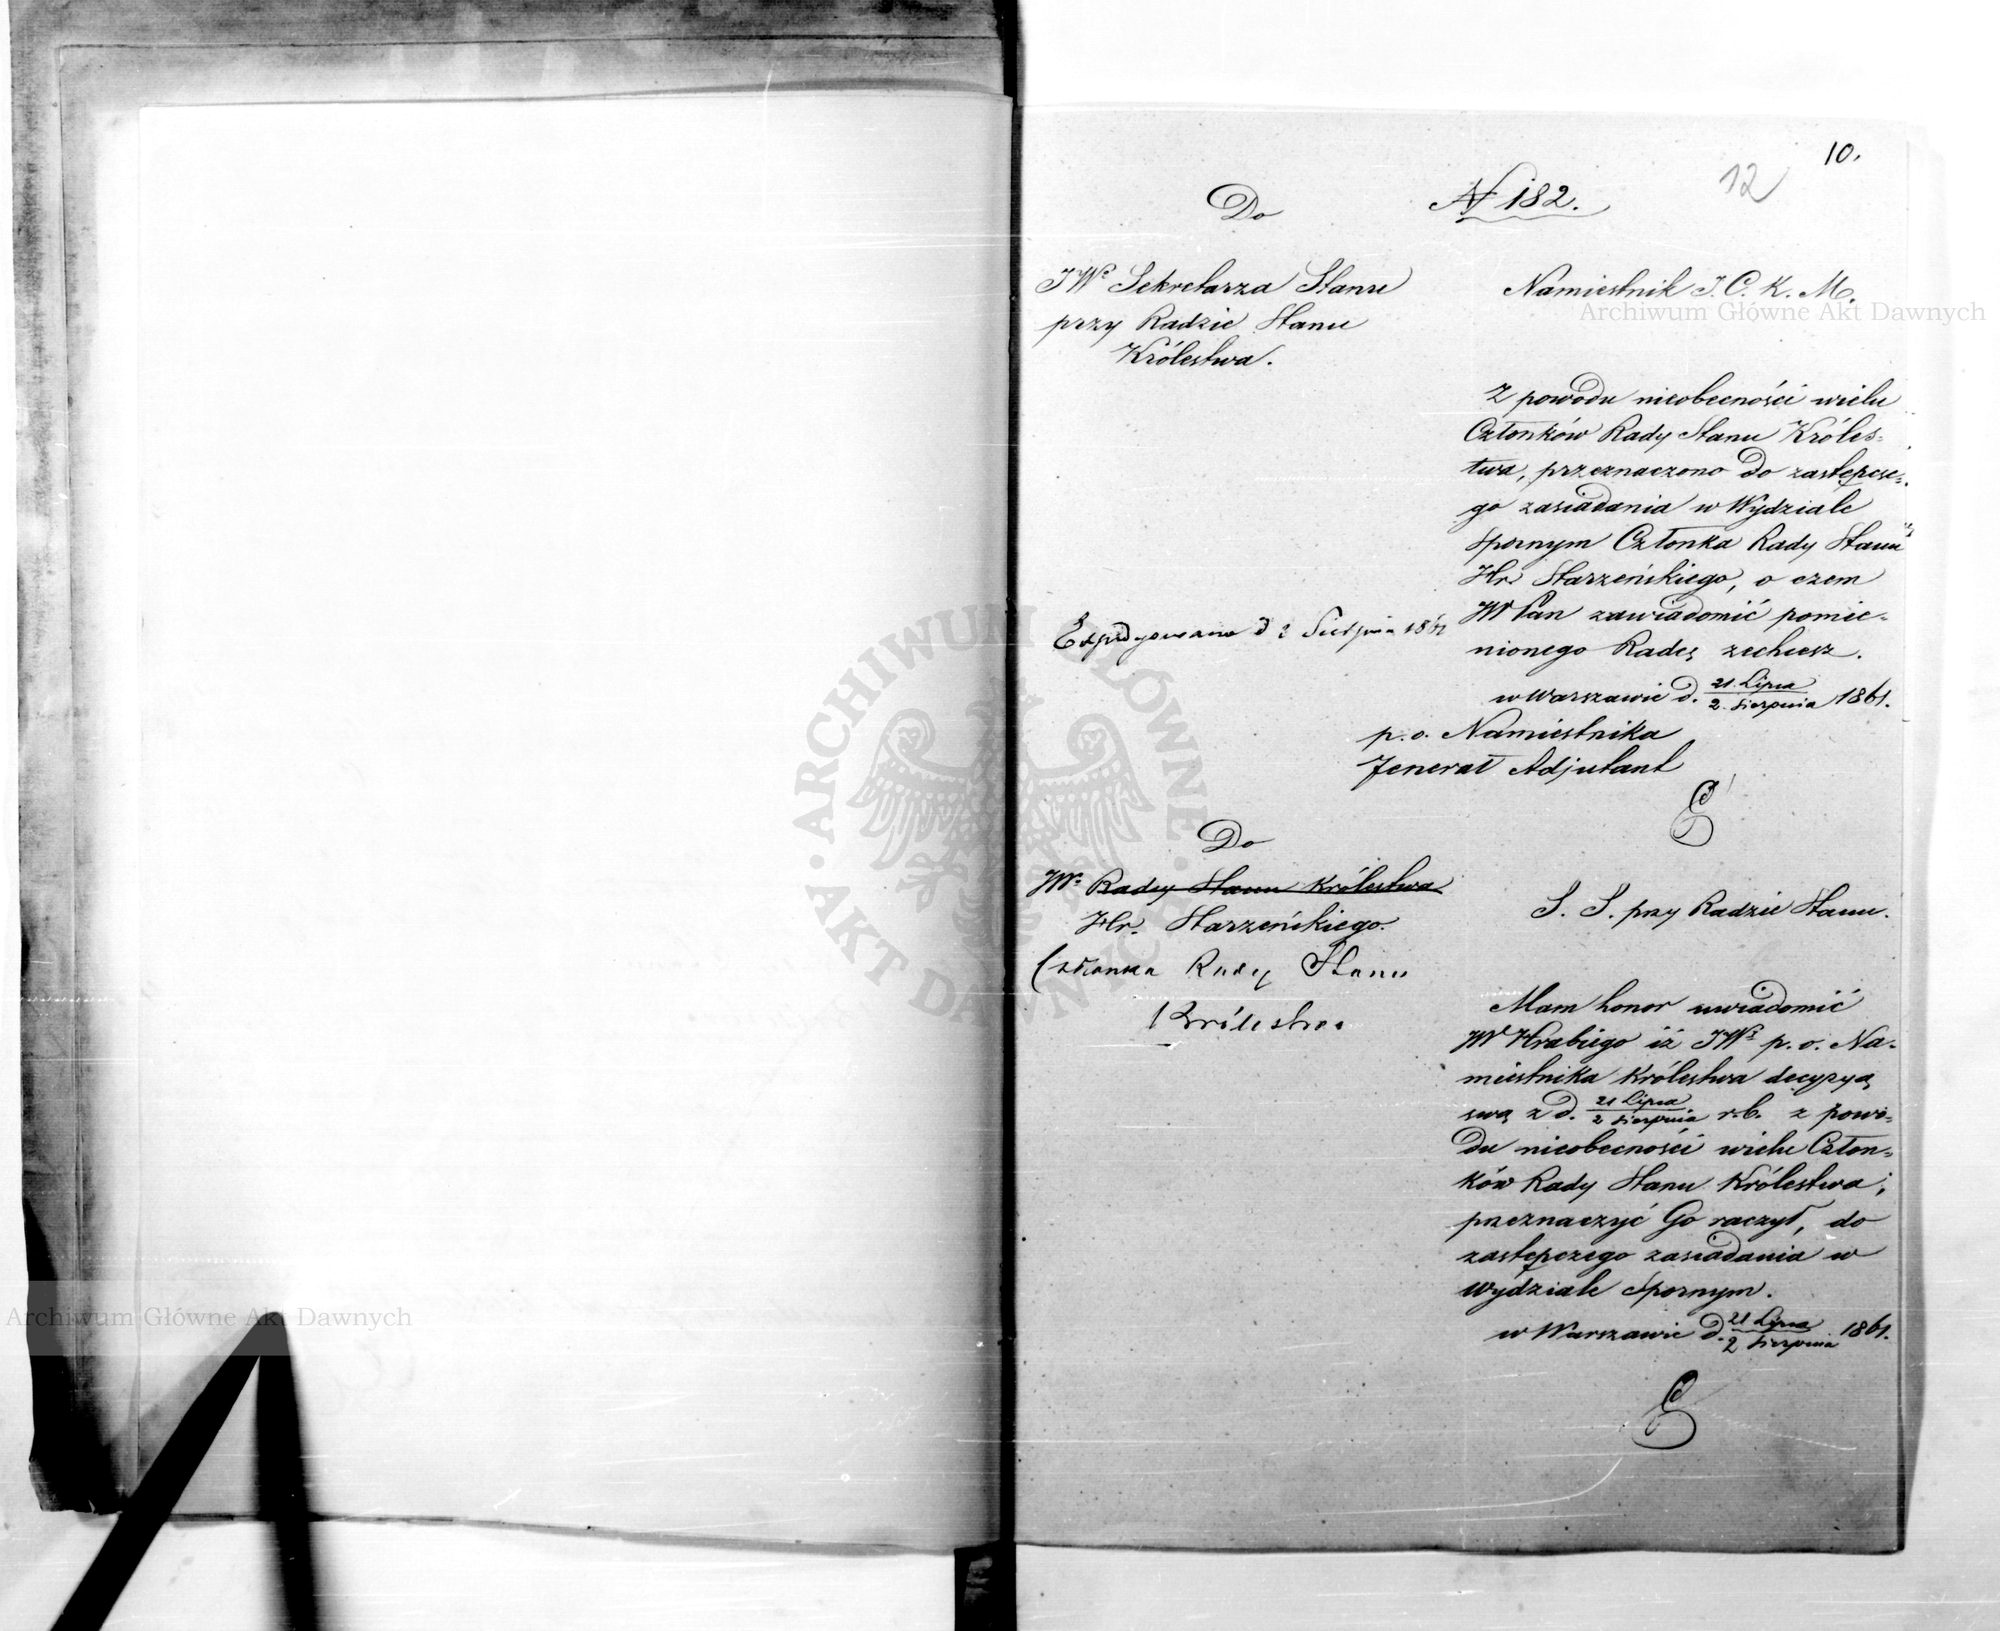 10.
12
N 182.
Do
JWo Sekretarza Stanu
przy Radzie Stanu
Królestwa.
Namiestnik J. C. K. M.
Z powodu nieobecności wielu
Członków Rady Stanu Króles=
twa, przeznaczono do zastępcze=
go zasiadania w Wydziale
Spornym Członka Rady Stanu
Hr. Starzeńskiego, o czem
JW Pan zawiadomić pomie=
nionego Radcę zechcesz.
w Warszawie d. 21. Lipca / 2. Sierpnia 1861.
Expedyowano d 2 Sierpnia 1861
p. o. Namiestnika
Jenerał Adjutant
Do
JWo Radcy Stanu Królestwa
Hr. Starzeńskiego.
Członka Rady Stanu
Królestwa
S. S. przy Radzie Stanu.
Mam honor uwiadomić
JW Hrabiego iż JWy p. o. Na=
miestnika Królestwa decyzyą
swą z d. 21 Lipca / 2 Sierpnia r. b. z powo=
du nieobecności wielu Człon=
ków Rady Stanu Królestwa,
przeznaczyć Go raczył, do
zastępczego zasiadania w
Wydziale Spornym.
w Warszawie d. 21 Lipca / 2 Sierpnia 1861.
Archiwum Główne Akt Dawnych
Archiwum Główne Akt Dawnych
ARCHIWUM GŁÓWNE AKT DAWNYCH